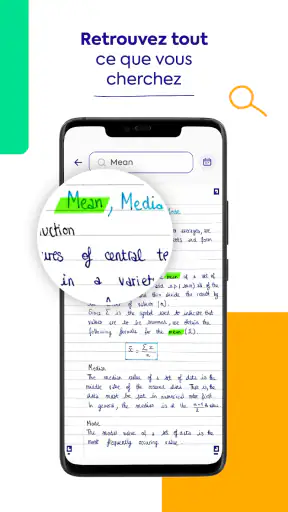 Retrouvez tout
ce que vous
cherchez
Mean
Mean, Media
uction
ures of central te
in a variet
Mean of a set of
of values (n).
Since Σ is the symbol used to indicate that
values are to be summed, we obtain the
following formula for the mean (x̄).
x̄ = Σx / n
Median
The median value of a set of data is the
middle value of the ordered data. That is, the
data must be put in numerical order first.
In general, the median is at the
value.
Mode
The modal value of a set of data is the
most frequently occuring value.